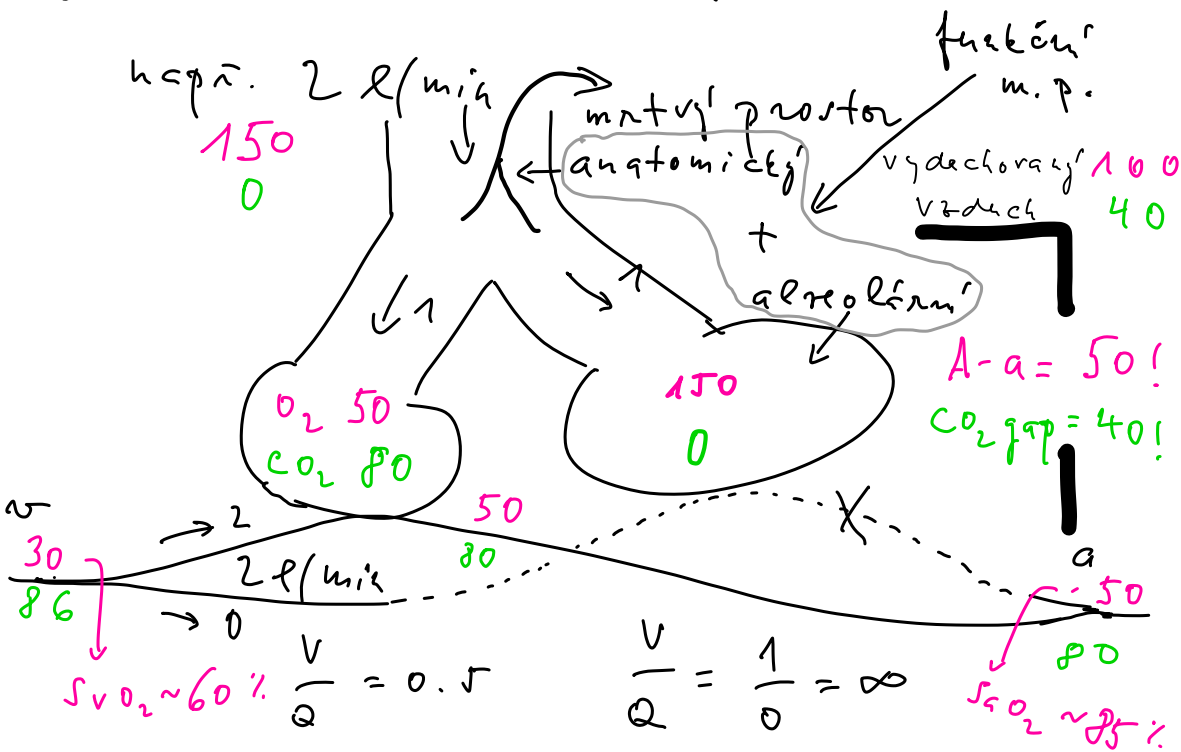 např. 2 l/min
150
0
mrtvý prostor
anatomický
+
alveolární
funkční
m. p.
vydechovaný
vzduch
100
40
1
1
O2 50
CO2 80
150
0
A-a = 50!
CO2 gap = 40!
v
30
86
2
2 l/min
0
50
80
a
50
80
SvO2 ~ 60 %
V/Q = 0.5
V/Q = 1/0 = ∞
SaO2 ~ 85 %